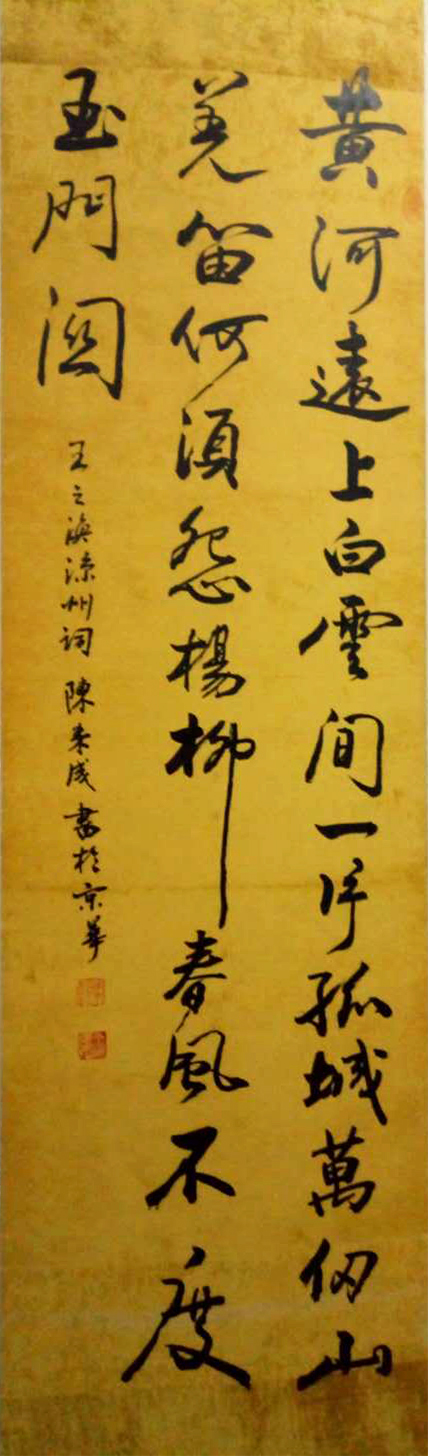 黄河遠上白雲間一片孤城萬仞山
羌笛何須怨楊柳春風不度
玉門關
王之渙涼州詞 陳來成書於京華